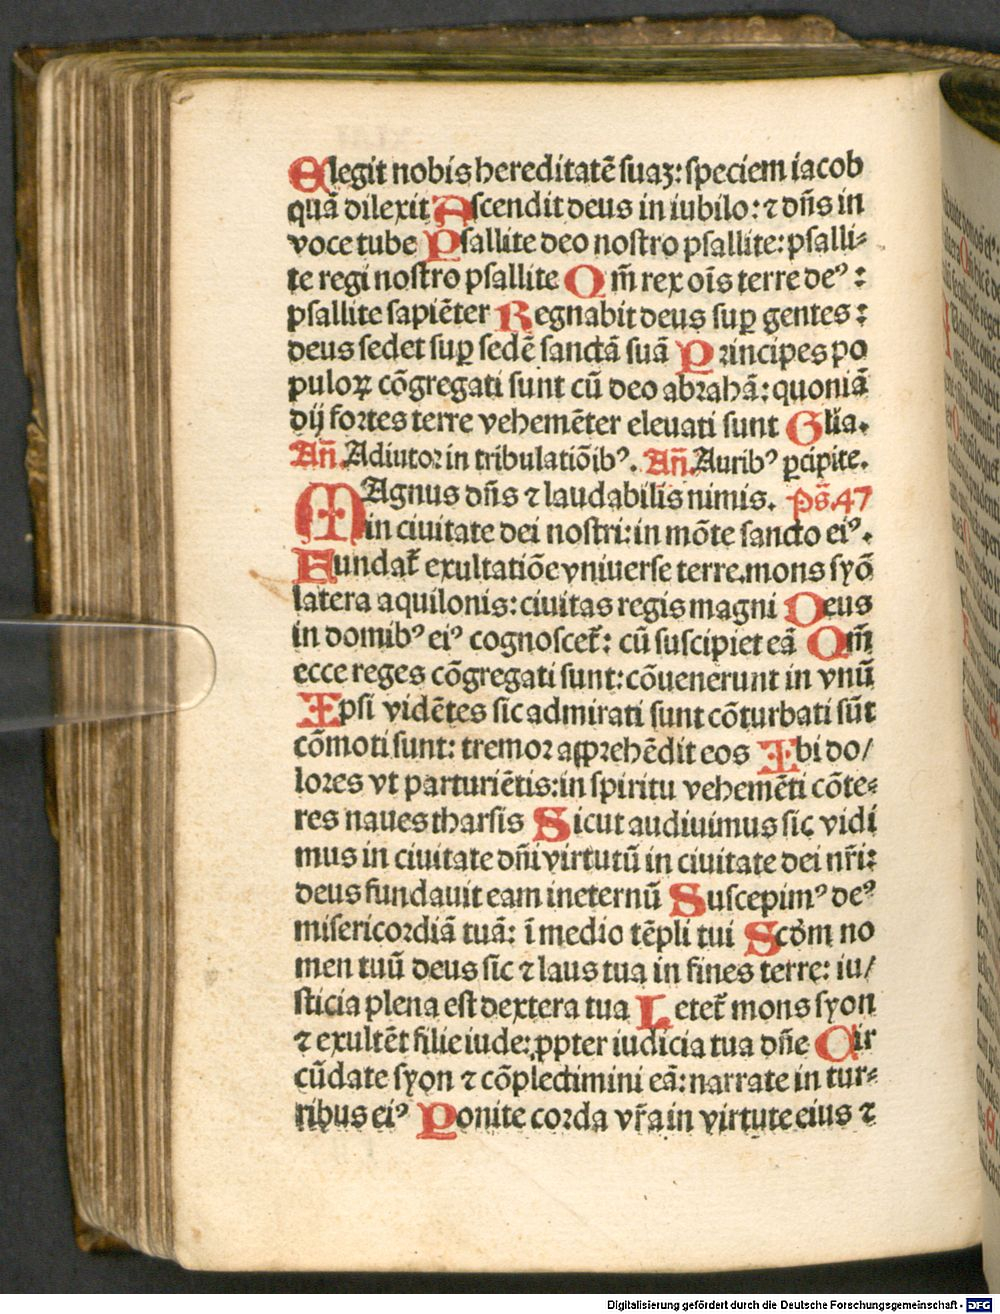 Elegit nobis hereditatē suaꝫ: speciem iacob
quā dilexit Ascendit deus in iubilo: ⁊ dn̄s in
voce tube Psallite deo nostro psallite: psalli⸗
te regi nostro psallite Qm̄ rex oīs terre deꝰ :
psallite sapiēter Regnabit deus suꝑ gentes :
deus sedet suꝑ sedē sanctā suā Principes po
puloꝝ cōgregati sunt cū deo abrahā: quoniā
dij fortes terre vehemēter eleuati sunt Gl̄ia.
An̄. Adiutor in tribulatiōibꝰ. An̄. Auribꝰ ꝑcipite.
MAgnus dn̄s ⁊ laudabilis nimis. ps̄.47
in ciuitate dei nostri: in mōte sancto eiꝰ.
Fundat̄ exultatiōe vniuerse terre. mons syō
latera aquilonis: ciuitas regis magni Deus
in domibꝰ eiꝰ cognoscet̄: cū suscipiet eā Qm̄
ecce reges cōgregati sunt: cōuenerunt in vnū
Ipsi vidētes sic admirati sunt cōturbati sūt
cōmoti sunt: tremor apprehēdit eos Ibi do/
lores vt parturiētis: in spiritu vehemēti cōte⸗
res naues tharsis Sicut audiuimus sic vidi
mus in ciuitate dn̄i virtutū in ciuitate dei nr̄i:
deus fundauit eam in eternū Suscepimꝰ deꝰ
misericordiā tuā: ī medio tēpli tui Scd̄m no
men tuū deus sic ⁊ laus tua in fines terre: iu/
sticia plena est dextera tua Letet̄ mons syon
⁊ exultēt filie iude: ꝓpter iudicia tua dn̄e Cir
cūdate syon ⁊ cōplectimini eā: narrate in tur⸗
ribus eiꝰ Ponite corda vr̄a in virtute eius ⁊
Digitalisierung gefördert durch die Deutsche Forschungsgemeinschaft - DFG